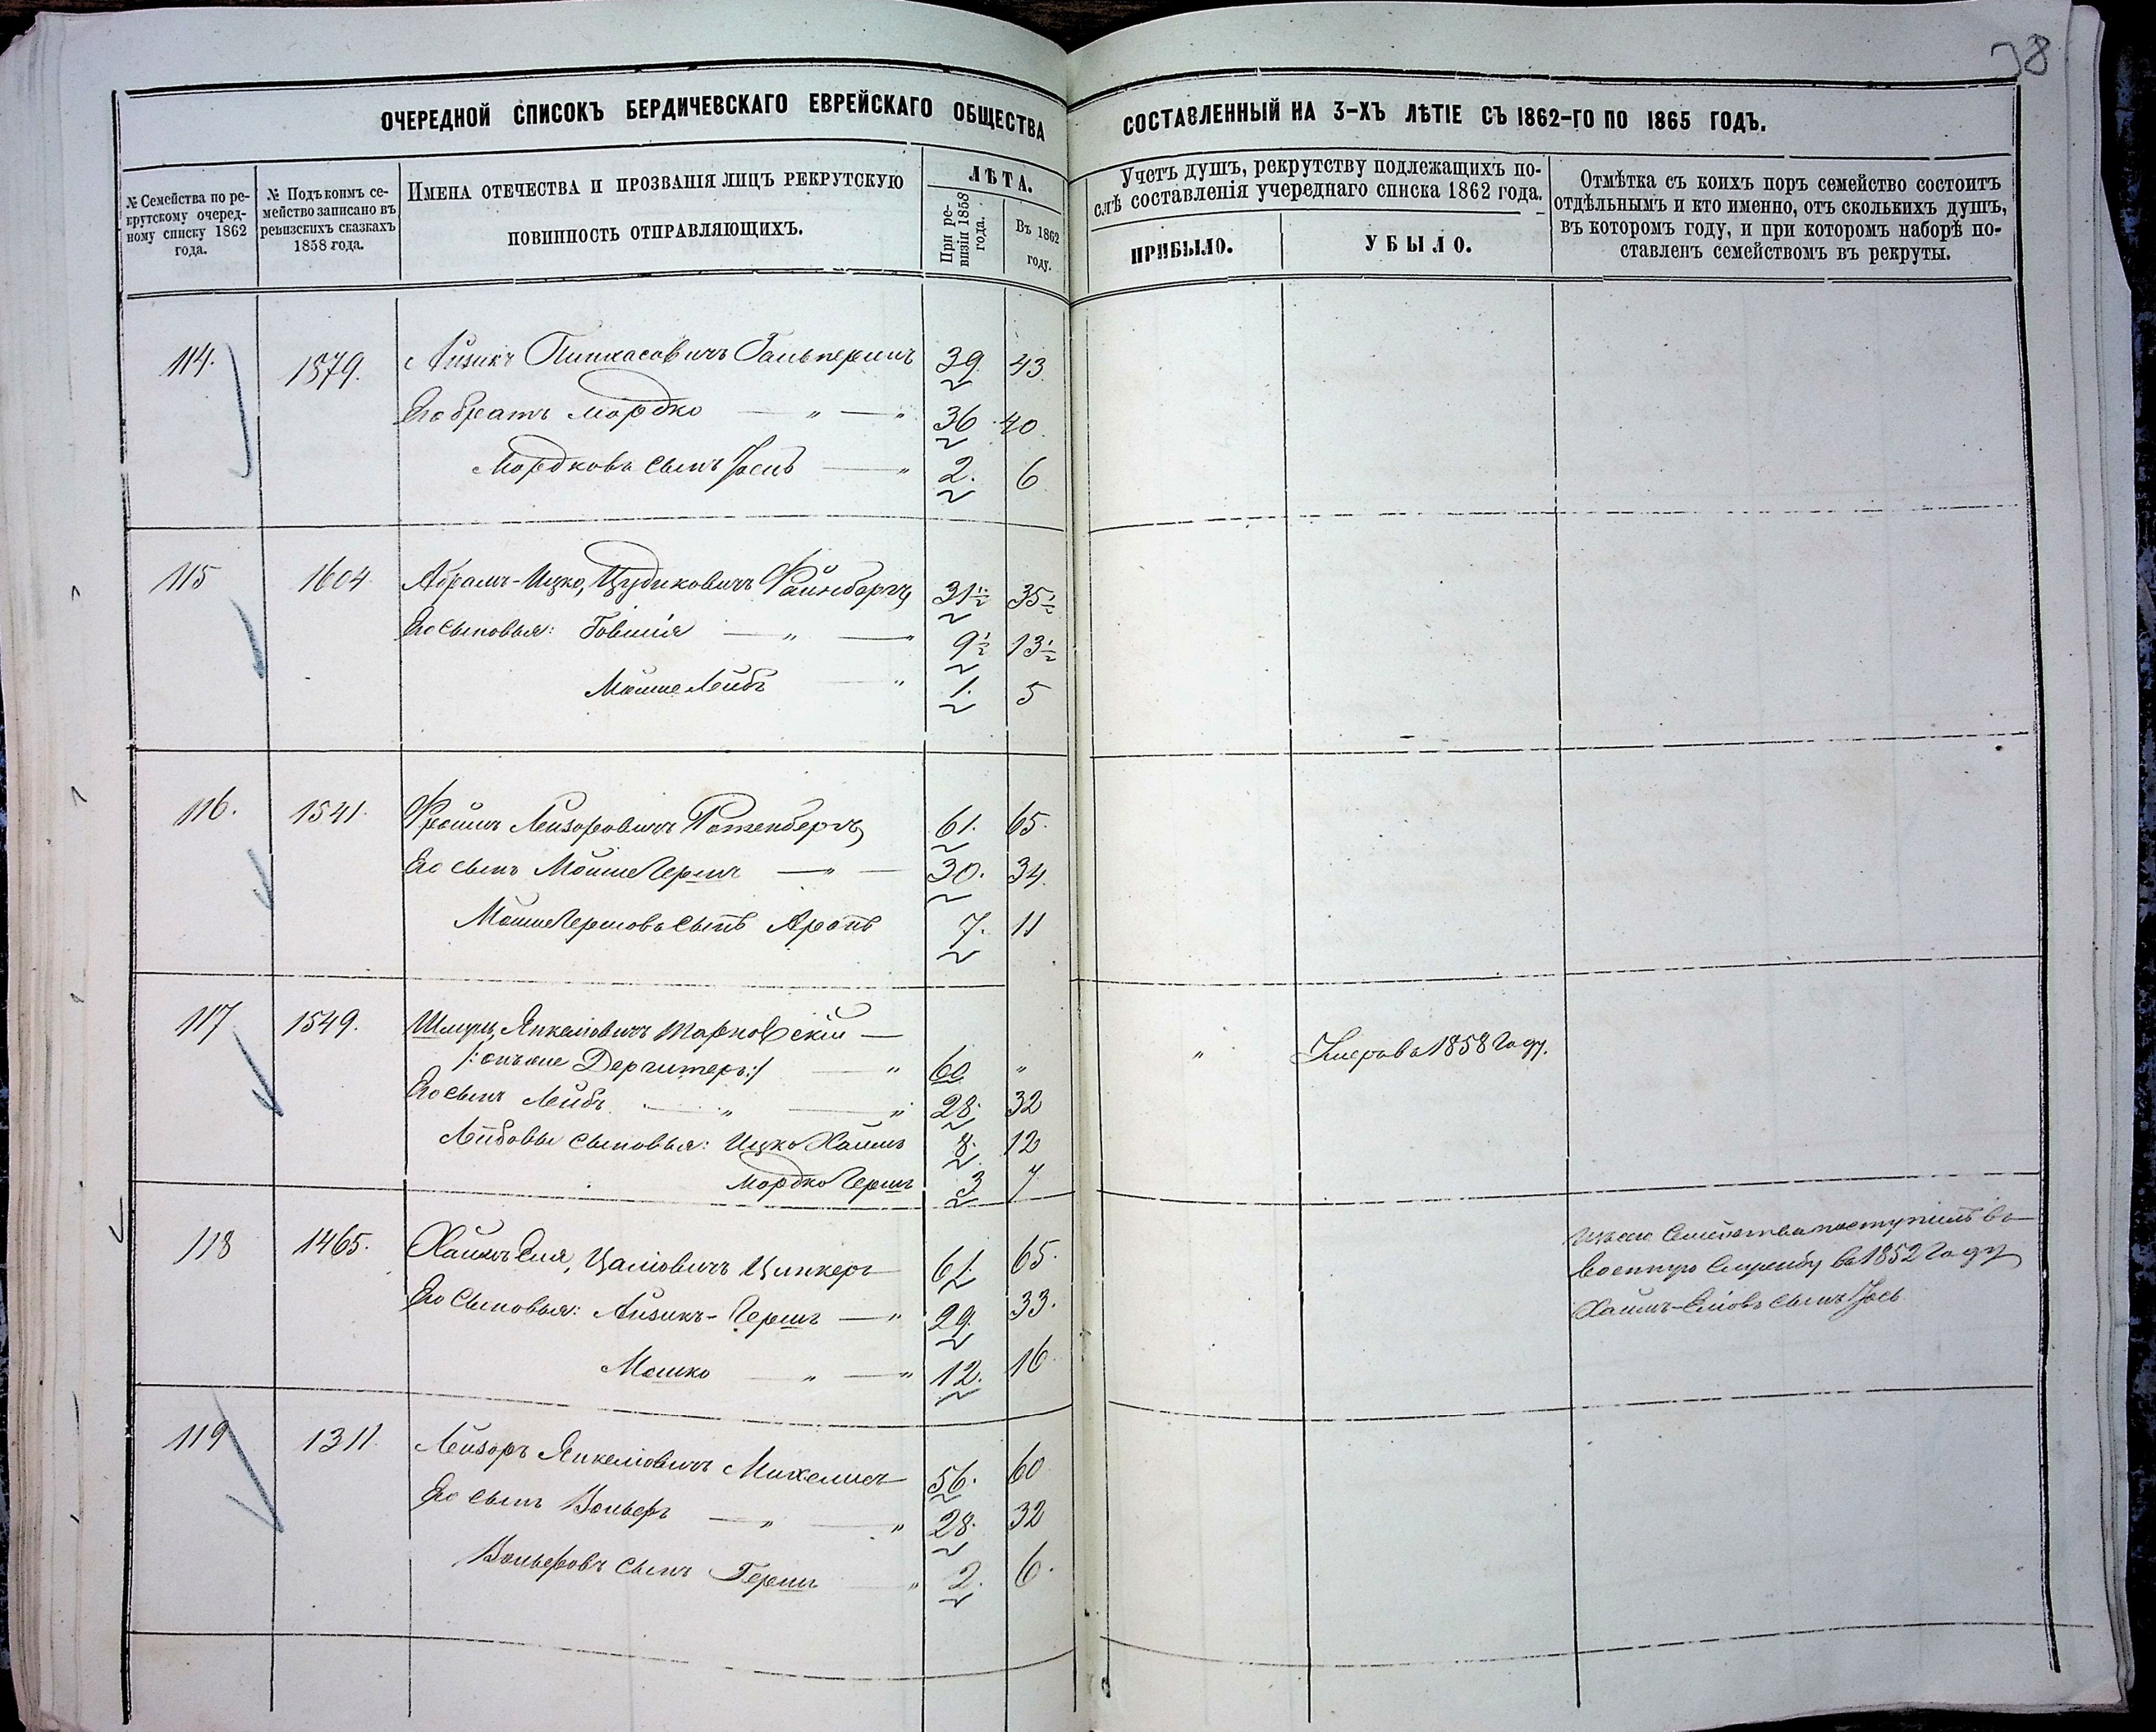 38
ОЧЕРЕДНОЙ СПИСОКЪ БЕРДИЧЕВСКАГО ЕВРЕЙСКАГО ОБЩЕСТВА СОСТАВЛЕННЫЙ НА 3-ХЪ ЛѢТІЕ СЪ 1862-ГО ПО 1865 ГОДЪ.
№ Семейства по ре-
крутскому очеред-
ному списку 1862
года.
№ Подъ коимъ се-
мейство записано въ
ревизскихъ сказкахъ
1858 года.
ИМЕНА ОТЕЧЕСТВА И ПРОЗВАНІЯ ЛИЦЪ РЕКРУТСКУЮ
ПОВИННОСТЬ ОТПРАВЛЯЮЩИХЪ.
ЛѢТА.
При ре-
визіи 1858
года.
Въ 1862
году.
Учетъ душъ, рекрутству подлежащихъ по-
слѣ составленія учереднаго списка 1862 года.
ПРИБЫЛО.
УБЫЛО.
Отмѣтка съ коихъ поръ семейство состоитъ
отдѣльнымъ и кто именно, отъ сколькихъ душъ,
въ котором году, и при которомъ наборѣ по-
ставленъ семействомъ въ рекруты.
114. 1579. Айзикъ Пинкасовичъ Гальперинъ 39. 43.
Его братъ Мордко — " — " 36 40.
Мордковъ сынъ Іось — " 2. 6
115 1604 Абрамъ-Ицко, Цудиковичъ Файнбергъ 31½ 35½
Его сыновья: Говшія — " — " 9½ 13½
Мошко Лейбъ — " 1. 5
116. 1541. Фроимъ Лейзоровичъ Ротенбергъ 61. 65.
Его сынъ Мошке Гершъ — " — 30. 34.
Мошке Гершовъ сынъ Аронъ 7. 11
117 1549. Шмуль Янкеліовичъ Тарновскій —
/:онъ же Дергитеръ:/ — " 60 " " Умеръ въ 1858 году.
Его сынъ Лейбъ — " — " 28. 32
Лейбовы сыновья: Ицко Хаимъ 8. 12
Мордко Гершъ 3 7
118 1465. Хаимъ Еля, Цаліовичъ Цинкеръ 61. 65. Изъ сего семейства поступилъ въ
военную службу въ 1852 году
Его сыновья: Айзикъ-Гершъ — " 29. 33. Хаимъ-Еліовъ сынъ Іось
Мошко — " — " 12. 16
119 1311. Лейзоръ Янкеліовичъ Михелисъ 56. 60
Его сынъ Вольфъ — " — " 28. 32
Вольфовъ сынъ Гершъ " 2. 6.